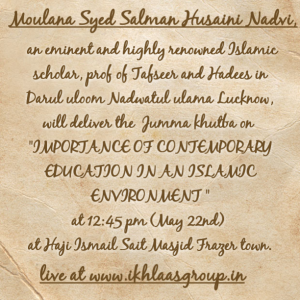 Moulana Syed Salman Husaini Nadvi,
an eminent and highly renowned Islamic
scholar, prof of Tafseer and Hadees in
Darul uloom Nadwatul ulama Lucknow,
will deliver the Jumma khutba on
"IMPORTANCE OF CONTEMPORARY
EDUCATION IN AN ISLAMIC
ENVIRONMENT "
at 12:45 pm (May 22nd)
at Haji Ismail Sait Masjid Frazer town.
live at www.ikhlaasgroup.in